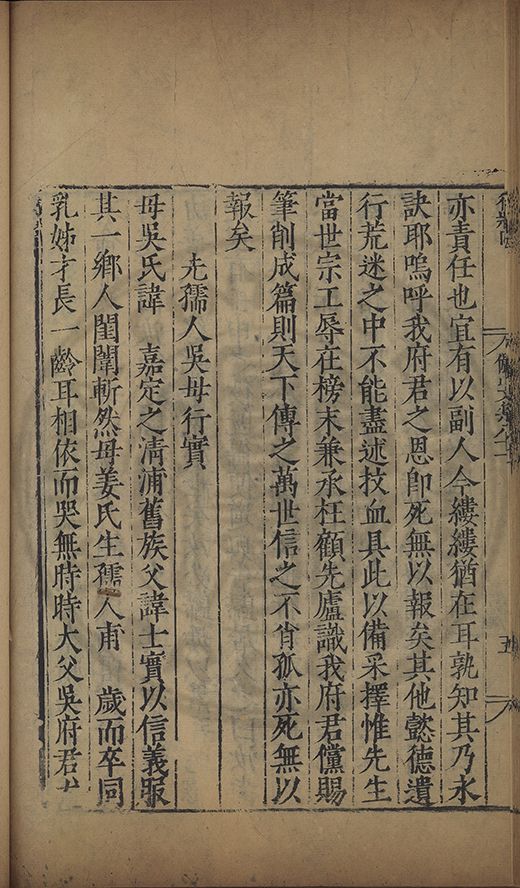 亦責任也宜有以副人今縷縷猶在耳孰知其乃永
訣耶嗚呼我府君之恩卽死無以報矣其他懿德遺
行荒迷之中不能盡述抆血具此以備采擇惟先生
當世宗工辱在榜末兼承枉顧先廬識我府君儻賜
筆削成篇則天下傳之萬世信之不肖孤亦死無以
報矣
先孺人吳母行實
母吳氏諱 嘉定之清浦舊族父諱士實以信義服
其一鄉人閨闈斬然母姜氏生孺人甫 歲而卒同
乳姊才長一齡耳相依而哭無時時大父吳府君